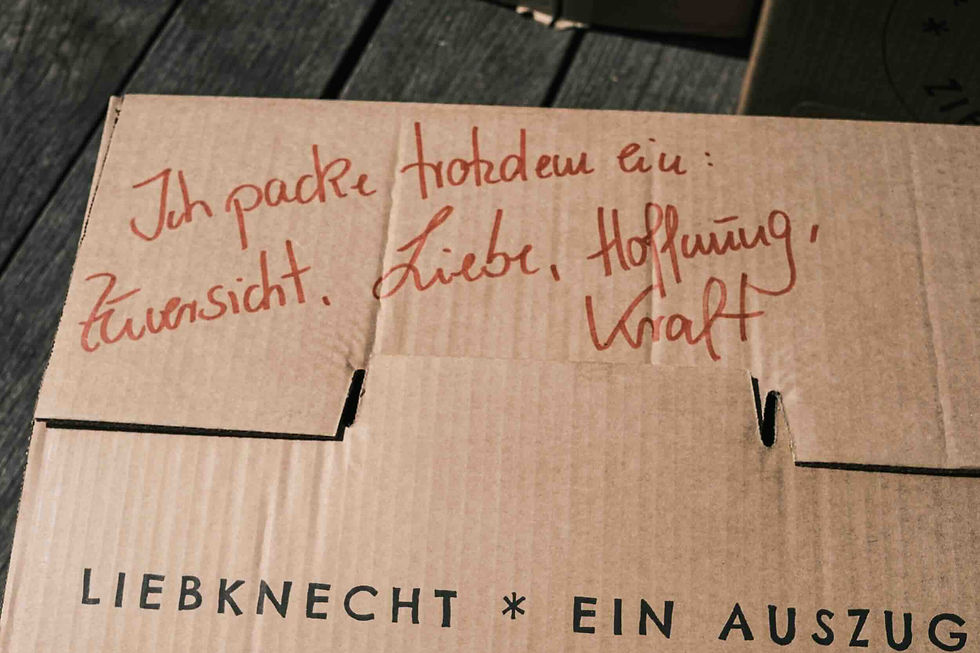 Ich packe trotzdem ein:
Zuversicht. Liebe, Hoffnung,
Kraft
LIEBKNECHT * EIN AUSZUG